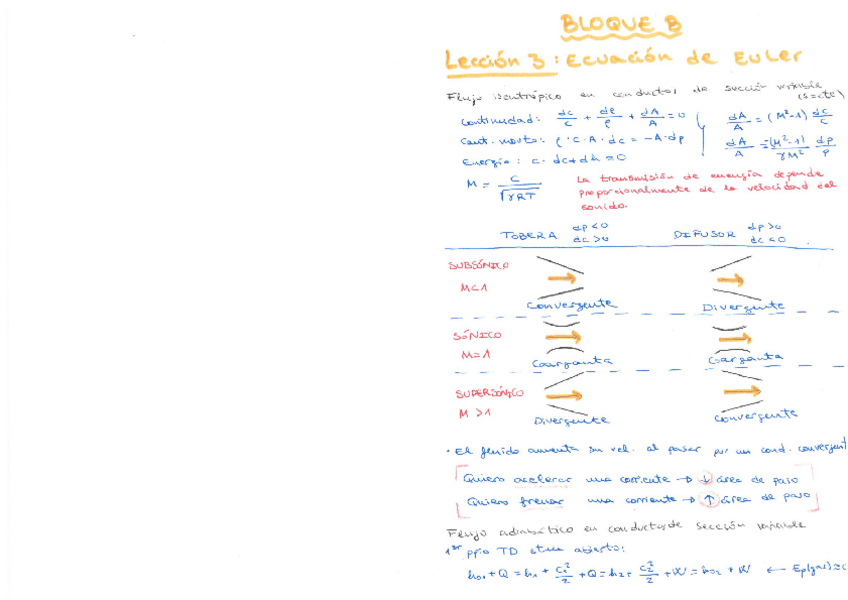 BLOQUE B
Lección 3: Ecuación de Euler
Flujo isentrópico en conductos de sección variable
(s=cte)
Continuidad: dc/c + dρ/ρ + dA/A = 0
dA/A = (M²-1) dc/c
Cant. movto: ρ·C·A·dc = -A·dp
dA/A = -(M²-1)/γM² dp/p
Energía: c·dc+dh=0
M = C/√γRT
La transmisión de energía depende
proporcionalmente de la velocidad del
sonido.
TOBERA dp<0 dc>0
DIFUSOR dp>0 dc<0
SUBSÓNICO
M<1
Convergente
Divergente
SÓNICO
M=1
Garganta
Garganta
SUPERSÓNICO
M>1
Divergente
Convergente
· El fluido aumenta su vel. al pasar por un cond. convergent
Quiero acelerar una corriente → ↓ área de paso
Quiero frenar una corriente → ↑ área de paso
Flujo adiabático en conductos de sección variable
1er ppio TD abierto:
h₀₁+Q = h₁ + c₁²/2 + Q = h₂ + c₂²/2 + W = h₀₂ + W ← Ep(gas)≈